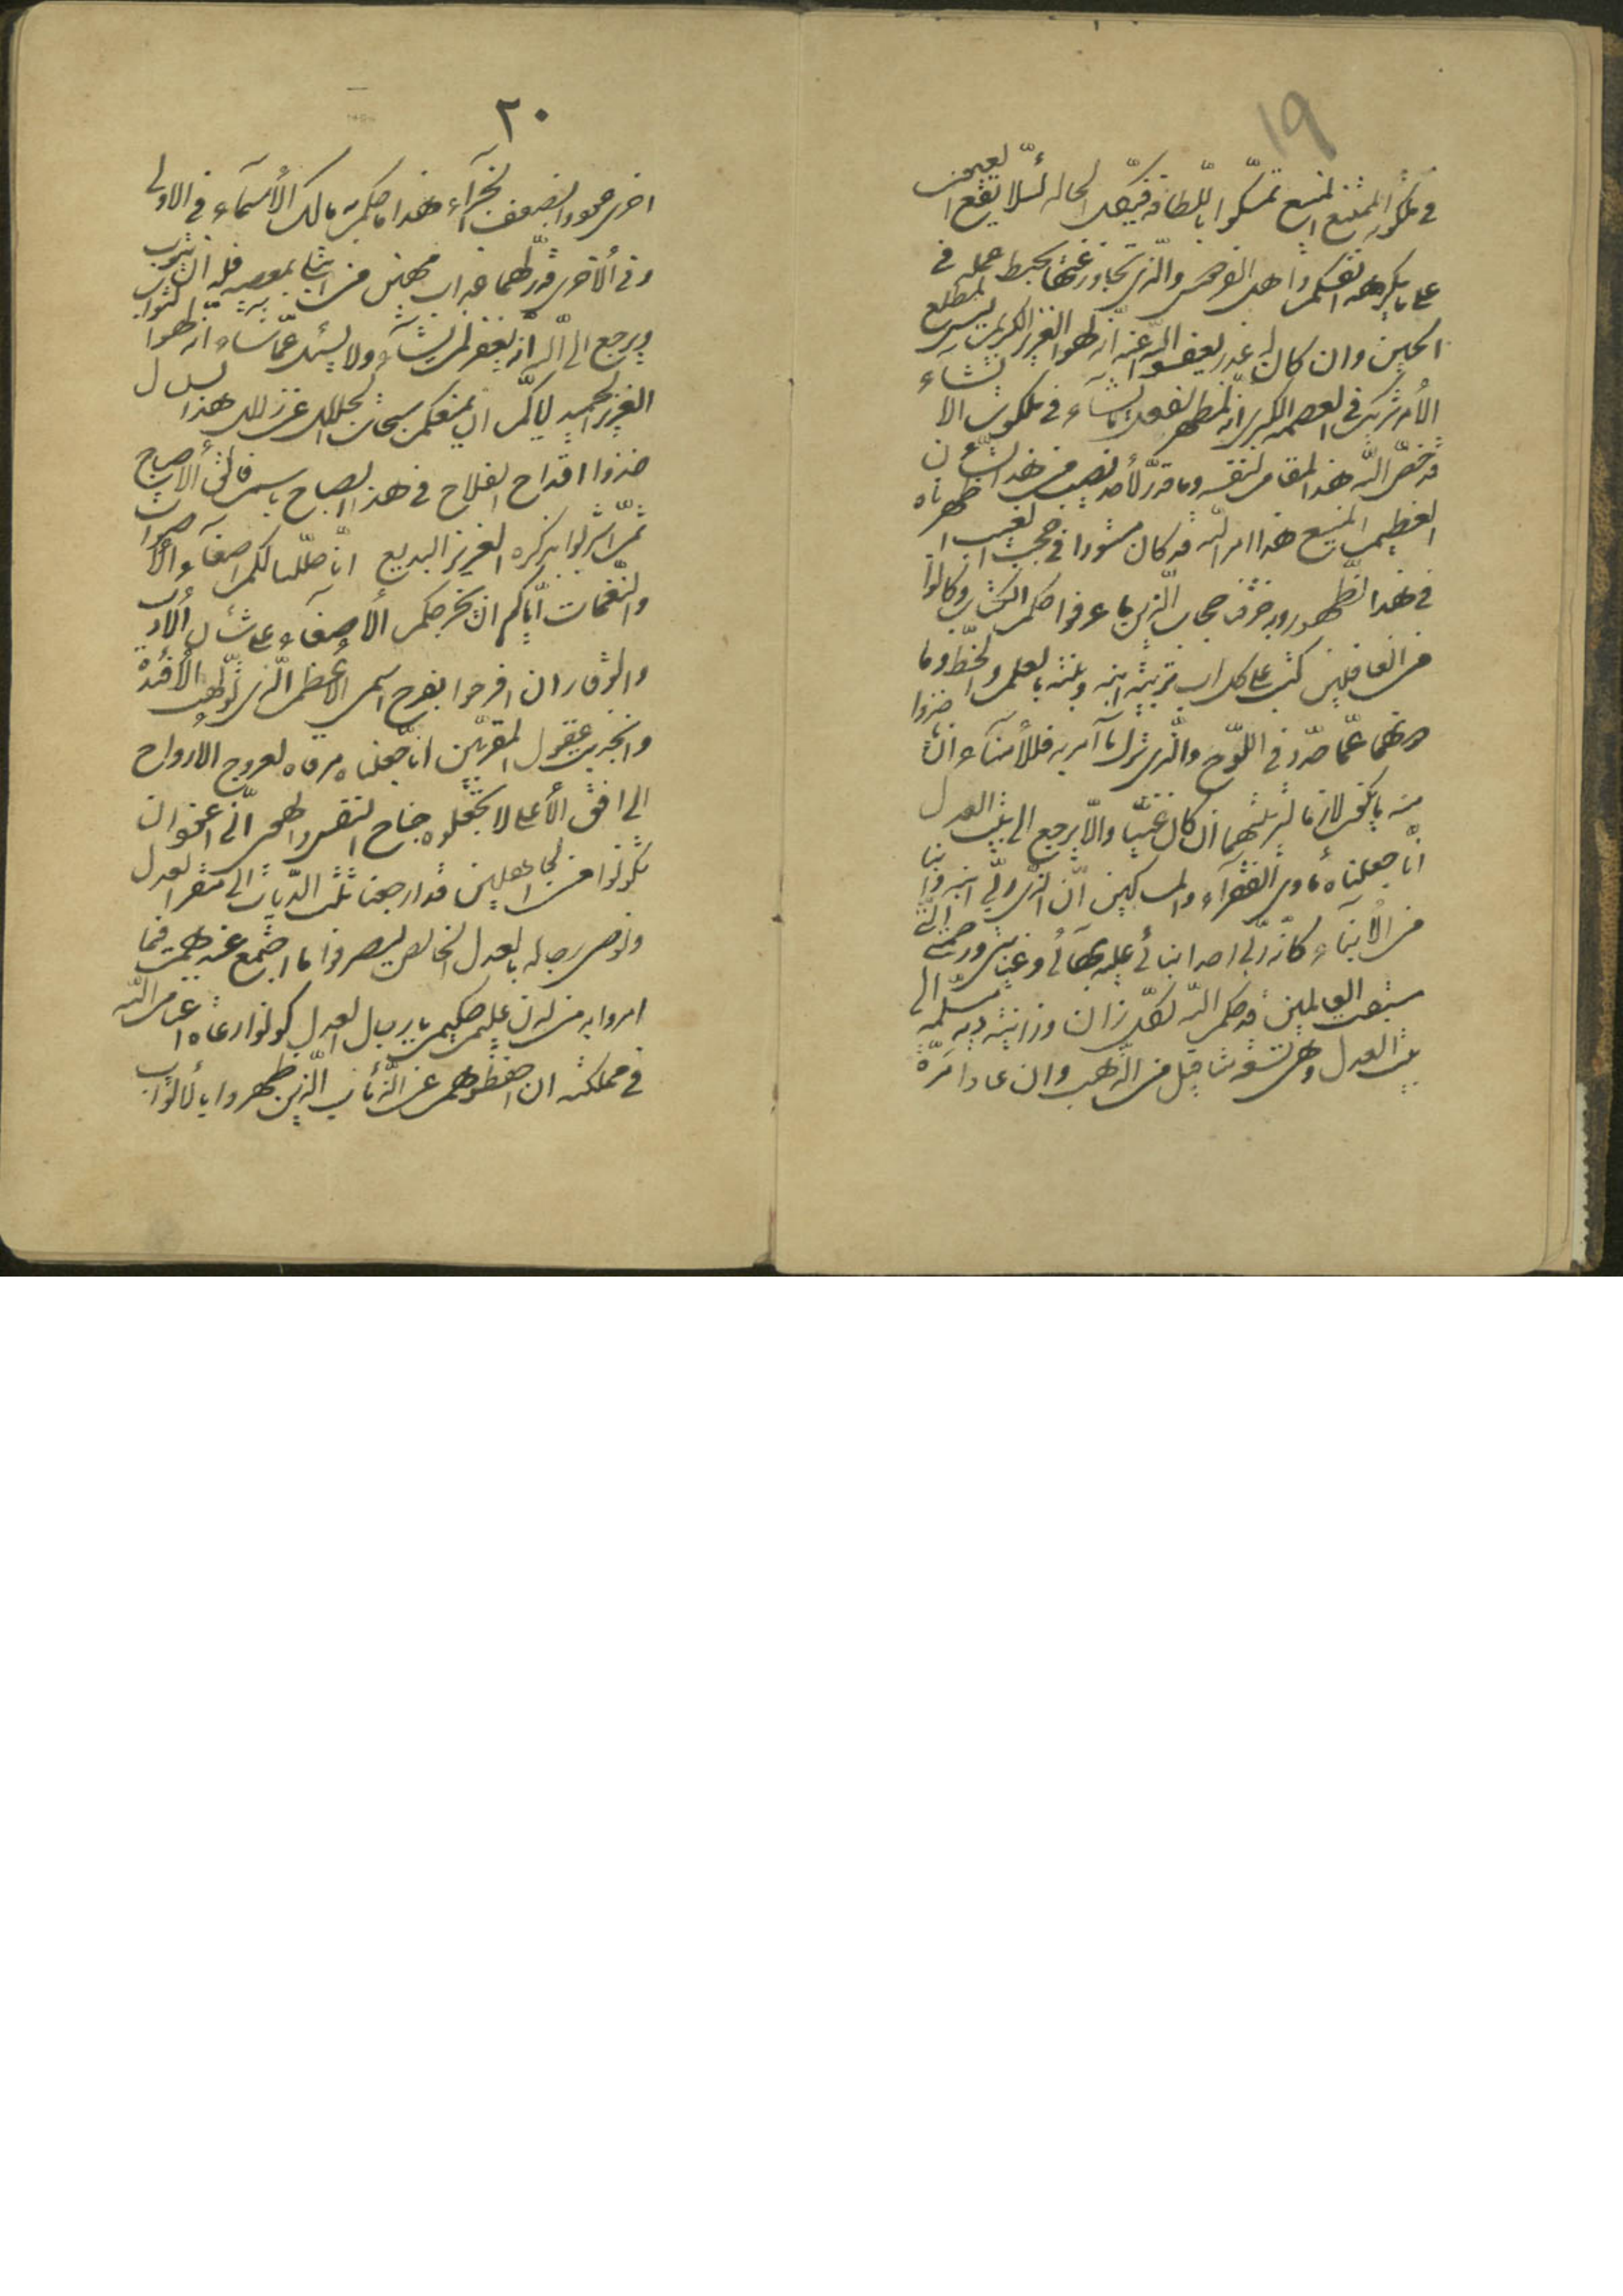 19
في ملكوته الممتنع المنيع تمسكوا باللطافة في كل الاحوال لئلا تقع العيون
على ما تكرهه انفسكم واهل الفردوس والذي تجاوز عنها يحبط عمله في
الحين وان كان له عذر يعف الله عنه انه لهو العزيز الكريم ليس لمطلع
الامر شريك في العصمة الكبرى انه لمظهر يفعل ما يشاء في ملكوت الانشاء
قد خص الله هذا المقام لنفسه وما قدر لاحد نصيب من هذا الشأن
العظيم المنيع هذا امر الله قد كان مستورا في حجب الغيب اظهرناه
في هذا الظهور وبه خرق حجاب الذين ما عرفوا حكم الكتاب وكانوا
من الغافلين كتب على كل اب تربية ابنه وبنته بالعلم والخط ودونهما
عما حدد في اللوح والذي ترك ما امر به فللامناء ان ياخذوا
منه ما يكون لازما لتربيتهما ان كان غنيا والا يرجع الى بيت العدل
انا جعلناه مأوى الفقراء والمساكين ان الذي ربى ابنه او ابنا
من الابناء كانه ربى احد ابنائي عليه بهائي وعنايتي ورحمتي التي
سبقت العالمين قد حكم الله لكل زان وزانية دية مسلمة الى
بيت العدل وهي تسعة مثاقيل من الذهب وان عادا مرة
٢٠
اخرى عودوا بضعف الجزاء هذا ما حكم به مالك الاسماء في الاولى
وفي الاخرى قدر لهما عذاب مهين من ابتلى بمعصية فله ان يتوب
ويرجع الى الله انه يغفر لمن يشاء ولا يسئل عما شاء انه لهو التواب
العزيز الحميد اياكم ان تمنعكم سبحات الجلال عن زلال هذا السلسال
خذوا اقداح الفلاح في هذا الصباح باسم فالق الاصباح
ثم اشربوا بذكره العزيز البديع انا حللنا لكم اصغاء الاصوات
والنغمات اياكم ان يخرجكم الاصغاء عن شأن الادب
والوقار ان افرحوا بفرح اسمي الاعظم الذي به تولهت الافئدة
وانجذبت عقول المقربين انا جعلناه مرقاة لعروج الارواح
الى الافق الاعلى لا تجعلوه جناح النفس والهوى اني اعوذ ان
تكونوا من الجاهلين قد ارجعنا ثلث الديات الى مقر العدل
ونوصي رجاله بالعدل الخالص ليصرفوا ما اجتمع عندهم فيما
امروا به من لدن عليم حكيم يا رجال العدل كونوا رعاة اغنام الله
في مملكته ان احفظوهم عن الذئاب الذين ظهروا بالاثواب